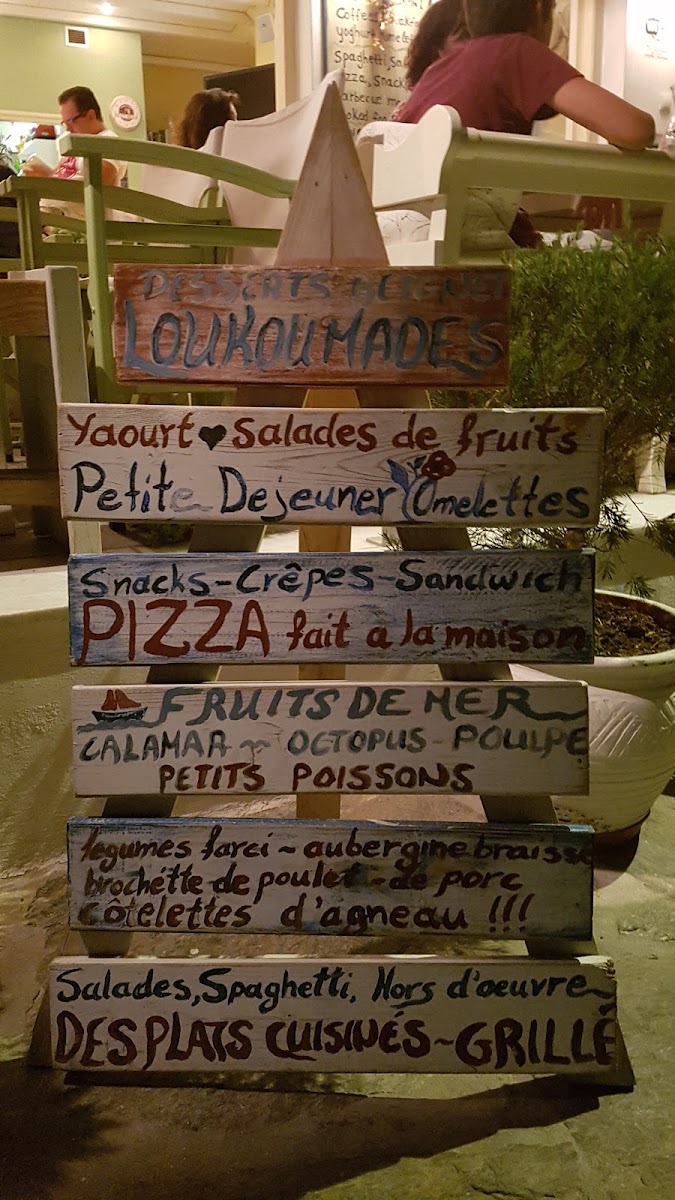 Coffee
Yoghurt
Spaghetti, Sal
Pizza, Snack
DESSERTS BEIGNET
LOUKOUMADES
Yaourt ♥ Salades de fruits
Petite Dejeuner Omelettes
Snacks-Crêpes-Sandwich
PIZZA fait a la maison
FRUITS DE MER
CALAMAR ~ OCTOPUS - POULPE
PETITS POISSONS
legumes farci ~ aubergine braissé
brochétte de poulet - de porc
côtelettes d'agneau !!!
Salades, Spaghetti, Hors d'oeuvre
DES PLATS CUISINÉS ~ GRILLÉ